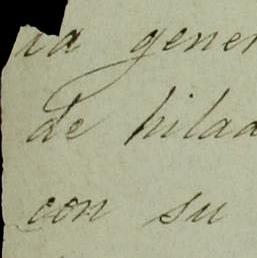 ia gener
de hilad
con su